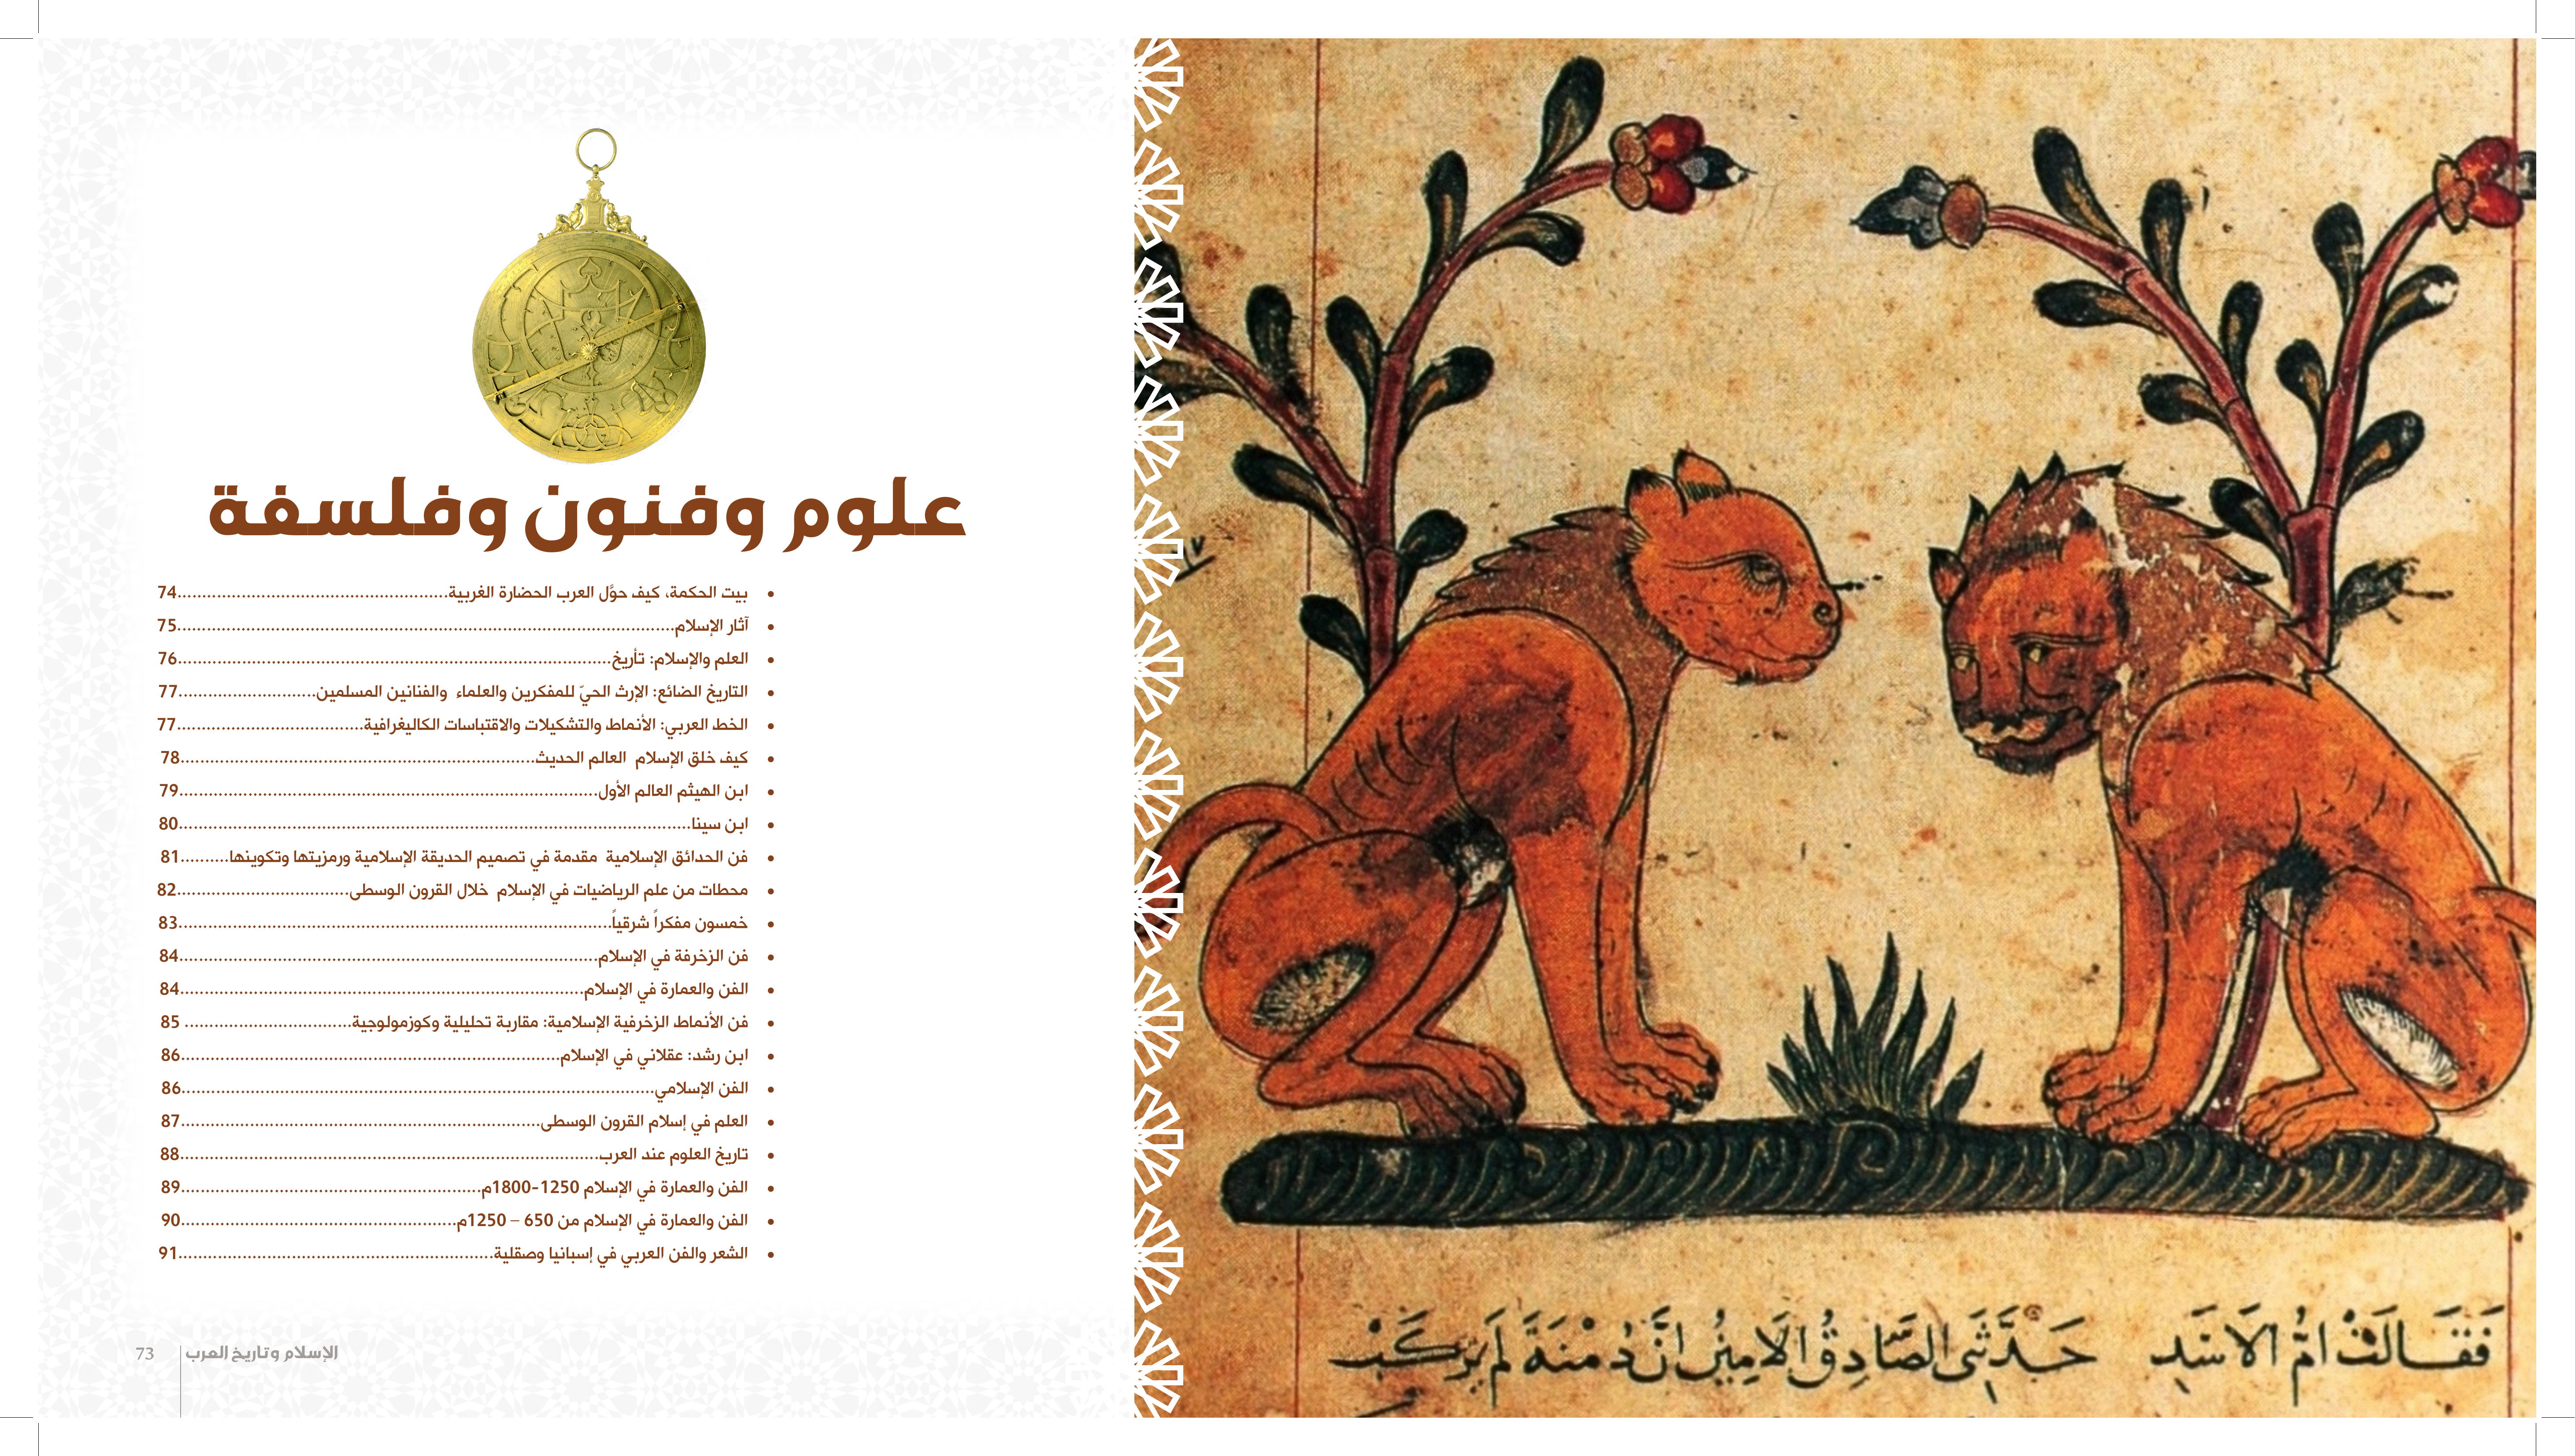 فَقَالَتْ امُّ الاَسَدِ حَدَّثَنِي الصَّادِقُ الاَمِينُ انَّ دِمْنَةَ لَمْ يَرْتَكِبْ
علوم وفنون وفلسفة
• بيت الحكمة، كيف حوَّل العرب الحضارة الغربية.......................................................74
• آثار الإسلام.....................................................................................................75
• العلم والإسلام: تأريخ........................................................................................76
• التاريخ الضائع: الإرث الحيّ للمفكرين والعلماء والفنانين المسلمين............................77
• الخط العربي: الأنماط والتشكيلات والاقتباسات الكاليغرافية......................................77
• كيف خلق الإسلام العالم الحديث........................................................................78
• ابن الهيثم العالم الأول.....................................................................................79
• ابن سينا........................................................................................................80
• فن الحدائق الإسلامية مقدمة في تصميم الحديقة الإسلامية ورمزيتها وتكوينها..........81
• محطات من علم الرياضيات في الإسلام خلال القرون الوسطى...................................82
• خمسون مفكراً شرقياً........................................................................................83
• فن الزخرفة في الإسلام.....................................................................................84
• الفن والعمارة في الإسلام..................................................................................84
• فن الأنماط الزخرفية الإسلامية: مقاربة تحليلية وكوزمولوجية.................................. 85
• ابن رشد: عقلاني في الإسلام.............................................................................86
• الفن الإسلامي................................................................................................86
• العلم في إسلام القرون الوسطى.........................................................................87
• تاريخ العلوم عند العرب.....................................................................................88
• الفن والعمارة في الإسلام 1250-1800م.............................................................89
• الفن والعمارة في الإسلام من 650 – 1250م........................................................90
• الشعر والفن العربي في إسبانيا وصقلية................................................................91
الإسلام وتاريخ العرب 73